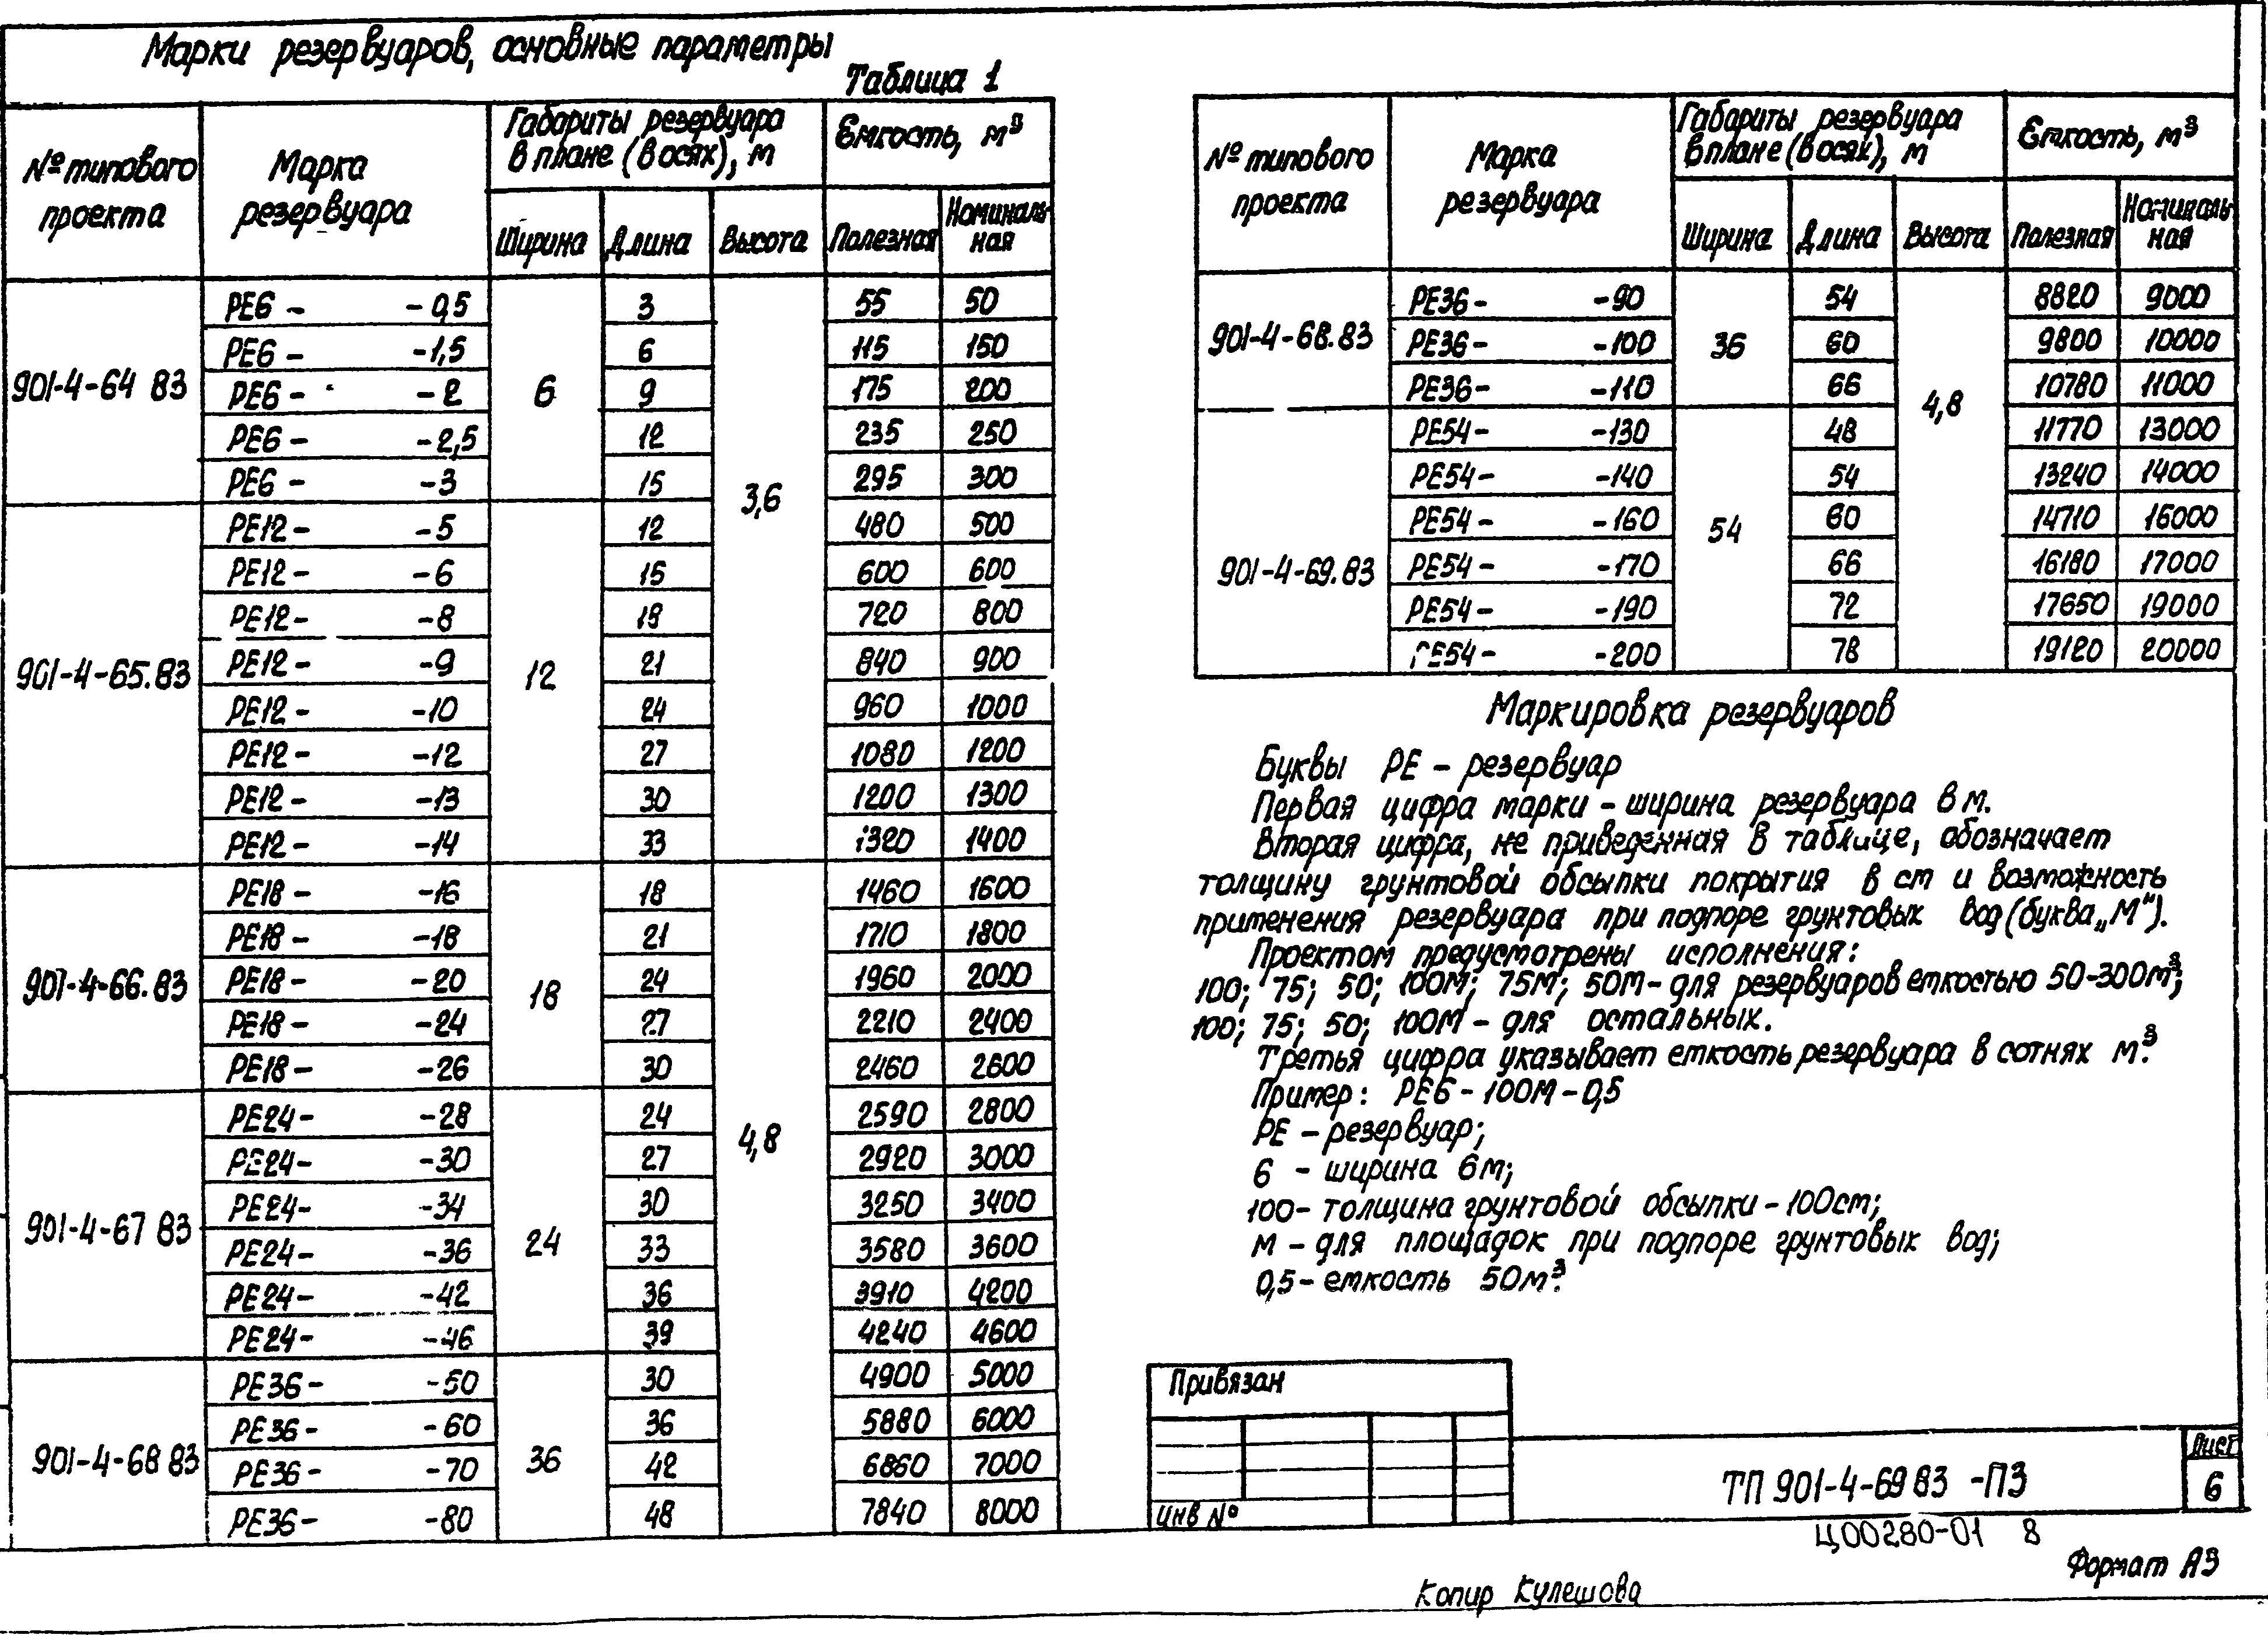 Марки резервуаров, основные параметры
Таблица 1
№ типового проекта | Марка резервуара | Габариты резервуара в плане (в осях), м | Емкость, м³
Ширина | Длина | Высота | Полезная | Номинальная
901-4-64 83 | 6 | 3,6
РЕ6 - - 0,5 | 3 | 55 | 50
РЕ6 - -1,5 | 6 | 115 | 150
РЕ6 - - 2 | 9 | 175 | 200
РЕ6 - -2,5 | 12 | 235 | 250
РЕ6 - -3 | 15 | 295 | 300
901-4-65.83 | 12
РЕ12- -5 | 12 | 480 | 500
РЕ12- -6 | 15 | 600 | 600
РЕ12- -8 | 18 | 720 | 800
РЕ12- -9 | 21 | 840 | 900
РЕ12- -10 | 24 | 960 | 1000
РЕ12- -12 | 27 | 1080 | 1200
РЕ12- -13 | 30 | 1200 | 1300
РЕ12- -14 | 33 | 1320 | 1400
901-4-66.83 | 18 | 4,8
РЕ18- -16 | 18 | 1460 | 1600
РЕ18- -18 | 21 | 1710 | 1800
РЕ18- -20 | 24 | 1960 | 2000
РЕ18- -24 | 27 | 2210 | 2400
РЕ18- -26 | 30 | 2460 | 2600
901-4-67 83 | 24
РЕ24- -28 | 24 | 2590 | 2800
РЕ24- -30 | 27 | 2920 | 3000
РЕ24- -34 | 30 | 3250 | 3400
РЕ24- -36 | 33 | 3580 | 3600
РЕ24- -42 | 36 | 3910 | 4200
РЕ24- -46 | 39 | 4240 | 4600
901-4-68 83 | 36
РЕ36- -50 | 30 | 4900 | 5000
РЕ36- -60 | 36 | 5880 | 6000
РЕ36- -70 | 42 | 6860 | 7000
РЕ36- -80 | 48 | 7840 | 8000
№ типового проекта | Марка резервуара | Габариты резервуара в плане (в осях), м | Емкость, м³
Ширина | Длина | Высота | Полезная | Номинальная
901-4-68.83 | 36 | 4,8
РЕ36- -90 | 54 | 8820 | 9000
РЕ36- -100 | 60 | 9800 | 10000
РЕ36- -110 | 66 | 10780 | 11000
901-4-69.83 | 54
РЕ54- -130 | 48 | 11770 | 13000
РЕ54- -140 | 54 | 13240 | 14000
РЕ54- -160 | 60 | 14710 | 16000
РЕ54- -170 | 66 | 16180 | 17000
РЕ54- -190 | 72 | 17650 | 19000
РЕ54- -200 | 78 | 19120 | 20000
Маркировка резервуаров
Буквы РЕ - резервуар
Первая цифра марки - ширина резервуара в м.
Вторая цифра, не приведенная в таблице, обозначает
толщину грунтовой обсыпки покрытия в см и возможность
применения резервуара при подпоре грунтовых вод (буква „М").
Проектом предусмотрены исполнения:
100; 75; 50; 100М; 75М; 50М - для резервуаров емкостью 50-300м³;
100; 75; 50; 100М - для остальных.
Третья цифра указывает емкость резервуара в сотнях м³.
Пример: РЕ6 - 100М - 0,5
РЕ - резервуар;
6 - ширина 6м;
100- толщина грунтовой обсыпки - 100см;
М - для площадок при подпоре грунтовых вод;
0,5- емкость 50м³.
Привязан
Инв №
ТП 901-4-69 83 -ПЗ
Лист
6
Ц00280-01 8
Формат А3
Копир Кулешова